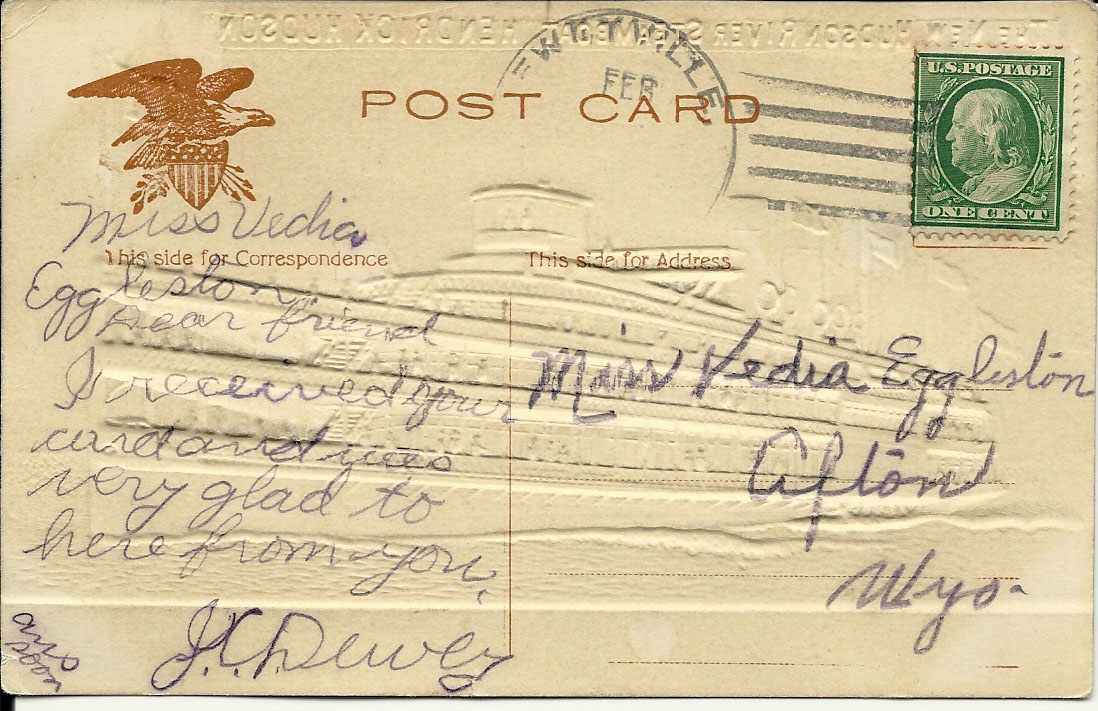 THE NEW HUDSON RIVER STEAMER HENDRICK HUDSON
EWEYVILLE
FEB
POST CARD
U.S. POSTAGE
ONE CENT
This side for Correspondence
This side for Address
Miss Vedia
Eggleston
Dear friend
I received your
card and was
very glad to
here from you.
J.C. Dewey
ans
soon
Miss Vedia Eggleston
Afton
Wyo.